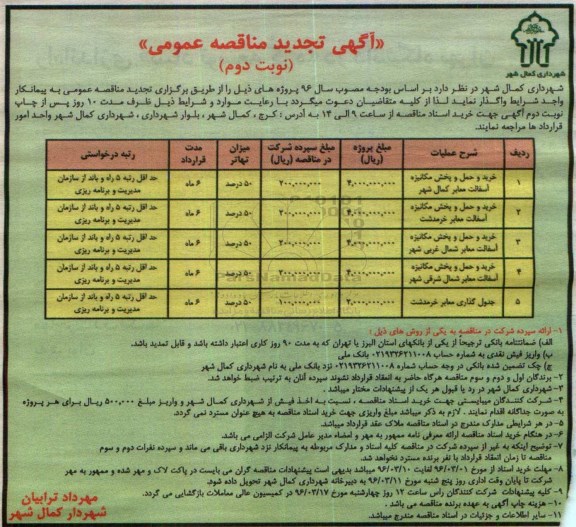 شهرداری کمال شهر
«آگهی تجدید مناقصه عمومی»
(نوبت دوم)
شهرداری کمال شهر در نظر دارد بر اساس بودجه مصوب سال ۹۶ پروژه های ذیل را از طریق برگزاری تجدید مناقصه عمومی به پیمانکار
واجد شرایط واگذار نماید لذا از کلیه متقاضیان دعوت میگردد با رعایت موارد و شرایط ذیل ظرف مدت ۱۰ روز پس از چاپ
نوبت دوم آگهی جهت خرید اسناد مناقصه از ساعت ۹ الی ۱۴ به آدرس : کرج ، کمال شهر ، بلوار شهرداری ، شهرداری کمال شهر واحد امور
قرارداد ها مراجعه نمایند.
ردیف شرح عملیات مبلغ پروژه (ریال) مبلغ سپرده شرکت در مناقصه (ریال) میزان تهاتر مدت قرارداد رتبه درخواستی
۱ خرید و حمل و پخش مکانیزه آسفالت معابر کمال شهر ۴,۰۰۰,۰۰۰,۰۰۰ ۲۰۰,۰۰۰,۰۰۰ ۵۰ درصد ۶ ماه حد اقل رتبه ۵ راه و باند از سازمان مدیریت و برنامه ریزی
۲ خرید و حمل و پخش مکانیزه آسفالت معابر خرمدشت ۴,۰۰۰,۰۰۰,۰۰۰ ۲۰۰,۰۰۰,۰۰۰ ۵۰ درصد ۶ ماه حد اقل رتبه ۵ راه و باند از سازمان مدیریت و برنامه ریزی
۳ خرید و حمل و پخش مکانیزه آسفالت معابر شمال غربی شهر ۴,۰۰۰,۰۰۰,۰۰۰ ۲۰۰,۰۰۰,۰۰۰ ۵۰ درصد ۶ ماه حد اقل رتبه ۵ راه و باند از سازمان مدیریت و برنامه ریزی
۴ خرید و حمل و پخش مکانیزه آسفالت معابر شمال شرقی شهر ۴,۰۰۰,۰۰۰,۰۰۰ ۲۰۰,۰۰۰,۰۰۰ ۵۰ درصد ۶ ماه حد اقل رتبه ۵ راه و باند از سازمان مدیریت و برنامه ریزی
۵ جدول گذاری معابر خرمدشت ۲,۰۰۰,۰۰۰,۰۰۰ ۱۰۰,۰۰۰,۰۰۰ ۵۰ درصد ۶ ماه حد اقل رتبه ۵ راه و باند از سازمان مدیریت و برنامه ریزی
ParsNamadData
۱- ارائه سپرده شرکت در مناقصه به یکی از روش های ذیل :
الف) ضمانتنامه بانکی ترجیحاً از یکی از بانکهای استان البرز یا تهران که به مدت ۹۰ روز کاری اعتبار داشته باشد و قابل تمدید باشد.
ب) واریز فیش نقدی به شماره حساب ۰۲۱۹۳۲۶۲۱۱۰۰۸ بانک ملی
ج) چک تضمین شده بانکی در وجه حساب شماره ۰۲۱۹۳۲۶۲۱۱۰۰۸ نزد بانک ملی به نام شهرداری کمال شهر
۲- برندگان اول و دوم و سوم مناقصه هرگاه حاضر به انعقاد قرارداد نشوند سپرده آنان به ترتیب ضبط خواهد شد.
۳- شهرداری کمال شهر در رد یا قبول هر یک از پیشنهادات مختار میباشد .
۴- شرکت کنندگان میبایستی جهت خرید اسناد مناقصه ، نسبت به اخذ فیش از شهرداری کمال شهر و واریز مبلغ ۵۰۰,۰۰۰ ریال برای هر پروژه
به صورت جداگانه اقدام نمایند . لازم به ذکر میباشد مبلغ واریزی جهت خرید اسناد مناقصه به هیچ عنوان مسترد نمی گردد.
۵- در هر شرایطی مدارک مندرج در اسناد مناقصه ملاک عقد قرارداد میباشد.
۶- در هنگام خرید اسناد مناقصه ارائه معرفی نامه ممهور به مهر و امضاء مدیر عامل شرکت الزامی می باشد.
۷- توضیح اینکه به غیر از سپرده شرکت در مناقصه کلیه اسناد و مدارک مربوطه به پیمانکار نزد شهرداری باقی می ماند و سپرده نفرات دوم و سوم
مناقصه تا زمان انعقاد قرارداد با نفر برنده مسترد نخواهد شد.
۸- مهلت خرید اسناد از مورخ ۹۶/۰۳/۰۱ لغایت ۹۶/۰۳/۱۰ میباشد بدیهی است پیشنهادات مناقصه گران می بایست در پاکت لاک و مهر شده و ممهور به مهر
شرکت تا پایان وقت اداری روز پنج شنبه مورخ ۹۶/۰۳/۱۱ به دبیرخانه شهرداری کمال شهر تحویل داده شود.
۹- کلیه پیشنهادات شرکت کنندگان راس ساعت ۱۲ روز چهارشنبه مورخ ۹۶/۰۳/۱۷ در کمیسیون عالی معاملات بازگشایی می گردد.
۱۰- هزینه چاپ آگهی به عهده برنده مناقصه می باشد .
۱۱- سایر اطلاعات و جزئیات در اسناد مناقصه مندرج میباشد.
مهرداد ترابیان
شهردار کمال شهر